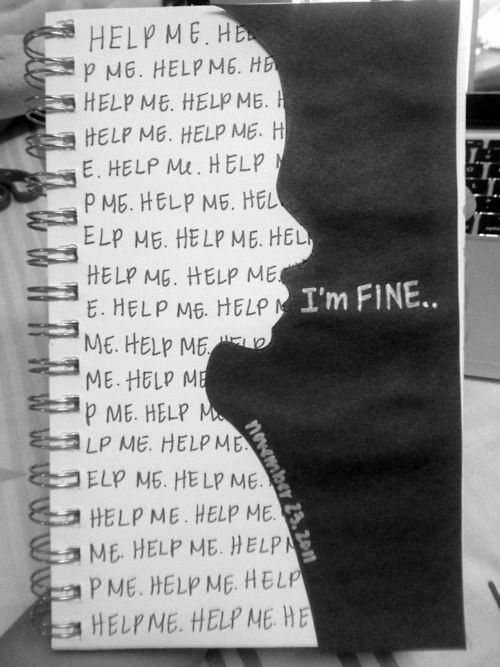 HELP ME. HEL
P ME. HELP ME. HE
HELP ME. HELP ME. H
HELP ME. HELP ME. H
E. HELP Me. HELP M
P ME. HELP ME. HEL
ELP ME. HELP ME. HELP
HELP ME. HELP ME.
I'm FINE..
E. HELP ME. HELP M
ME. HELP ME. HELP
ME. HELP ME
P ME. HELP ME
LP ME. HELP ME.
november 23, 2011
ELP ME. HELP ME.
HELP ME. HELP ME.
ME. HELP ME. HELP M
P ME. HELP ME. HELP
HELP ME. HELP ME. HE